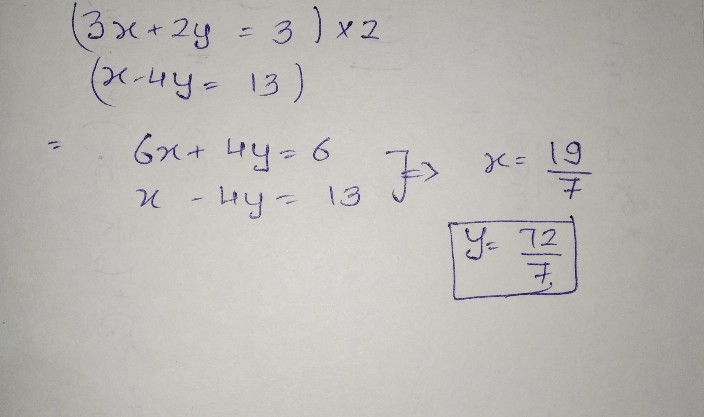 (3x + 2y = 3) × 2
(x - 4y = 13)
= 6x + 4y = 6
x - 4y = 13
} => x = 19/7
y = 72/7